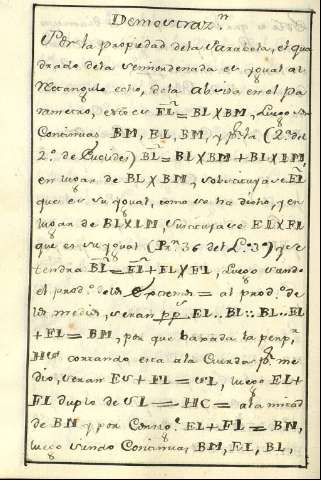 Demostraz.n
Por la propiedad dela Parabola, el qua
drado dela semiordenada es ygual al
Rectangulo echo, dela abscisa en el pa
rametro, esto es EL = BL X BM, Luego son
Continuas BM, EL, BM, y p.r la (2.a del
2.o de Euclides) BL = BL X BM + BL X LM,
en lugar de BL X BM, substituyase EL
que es su ygual, como se ha dicho, y en
lugar de BL X LM, sustituyase EL X FL
que es su ygual (Pr.n 36 del L.o 3.o) y se
tendra BL = EL + EL X FL, Luego siendo
el prod.o delos extremos = al prod.o de
los medios, seran pp EL .. BL :: BL .. EL
+ FL = BM, por que baxada la perp.r
HS cortando esta ala Cuerda p.r me
dio, seran ES + FL = SL, luego EL +
FL duplo de SL = HC = ala mitad
de BM y por Consig.e EL + FL = BM,
luego siendo Continuas BM, EL, BL,